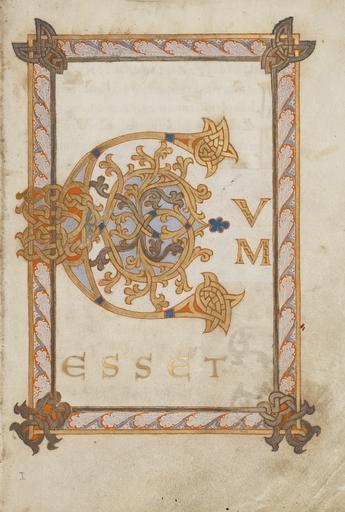 C
V
M
ESSET
1